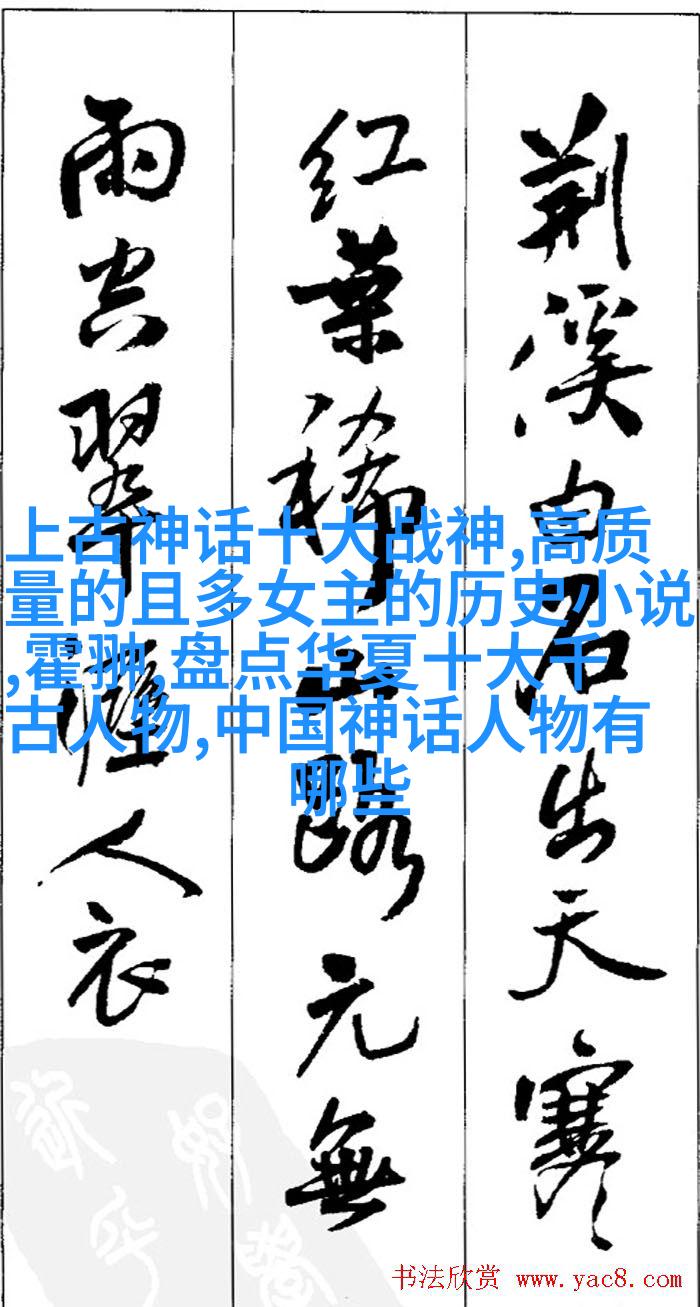 荆溪白石出天寒
红葉稀山路元無
雨空翠濕人衣
上古神话十大战神,高质
量的且多女主的历史小说
,霍翀,盘点华夏十大千
古人物,中国神话人物有
哪些
书法欣赏 www.yac8.com